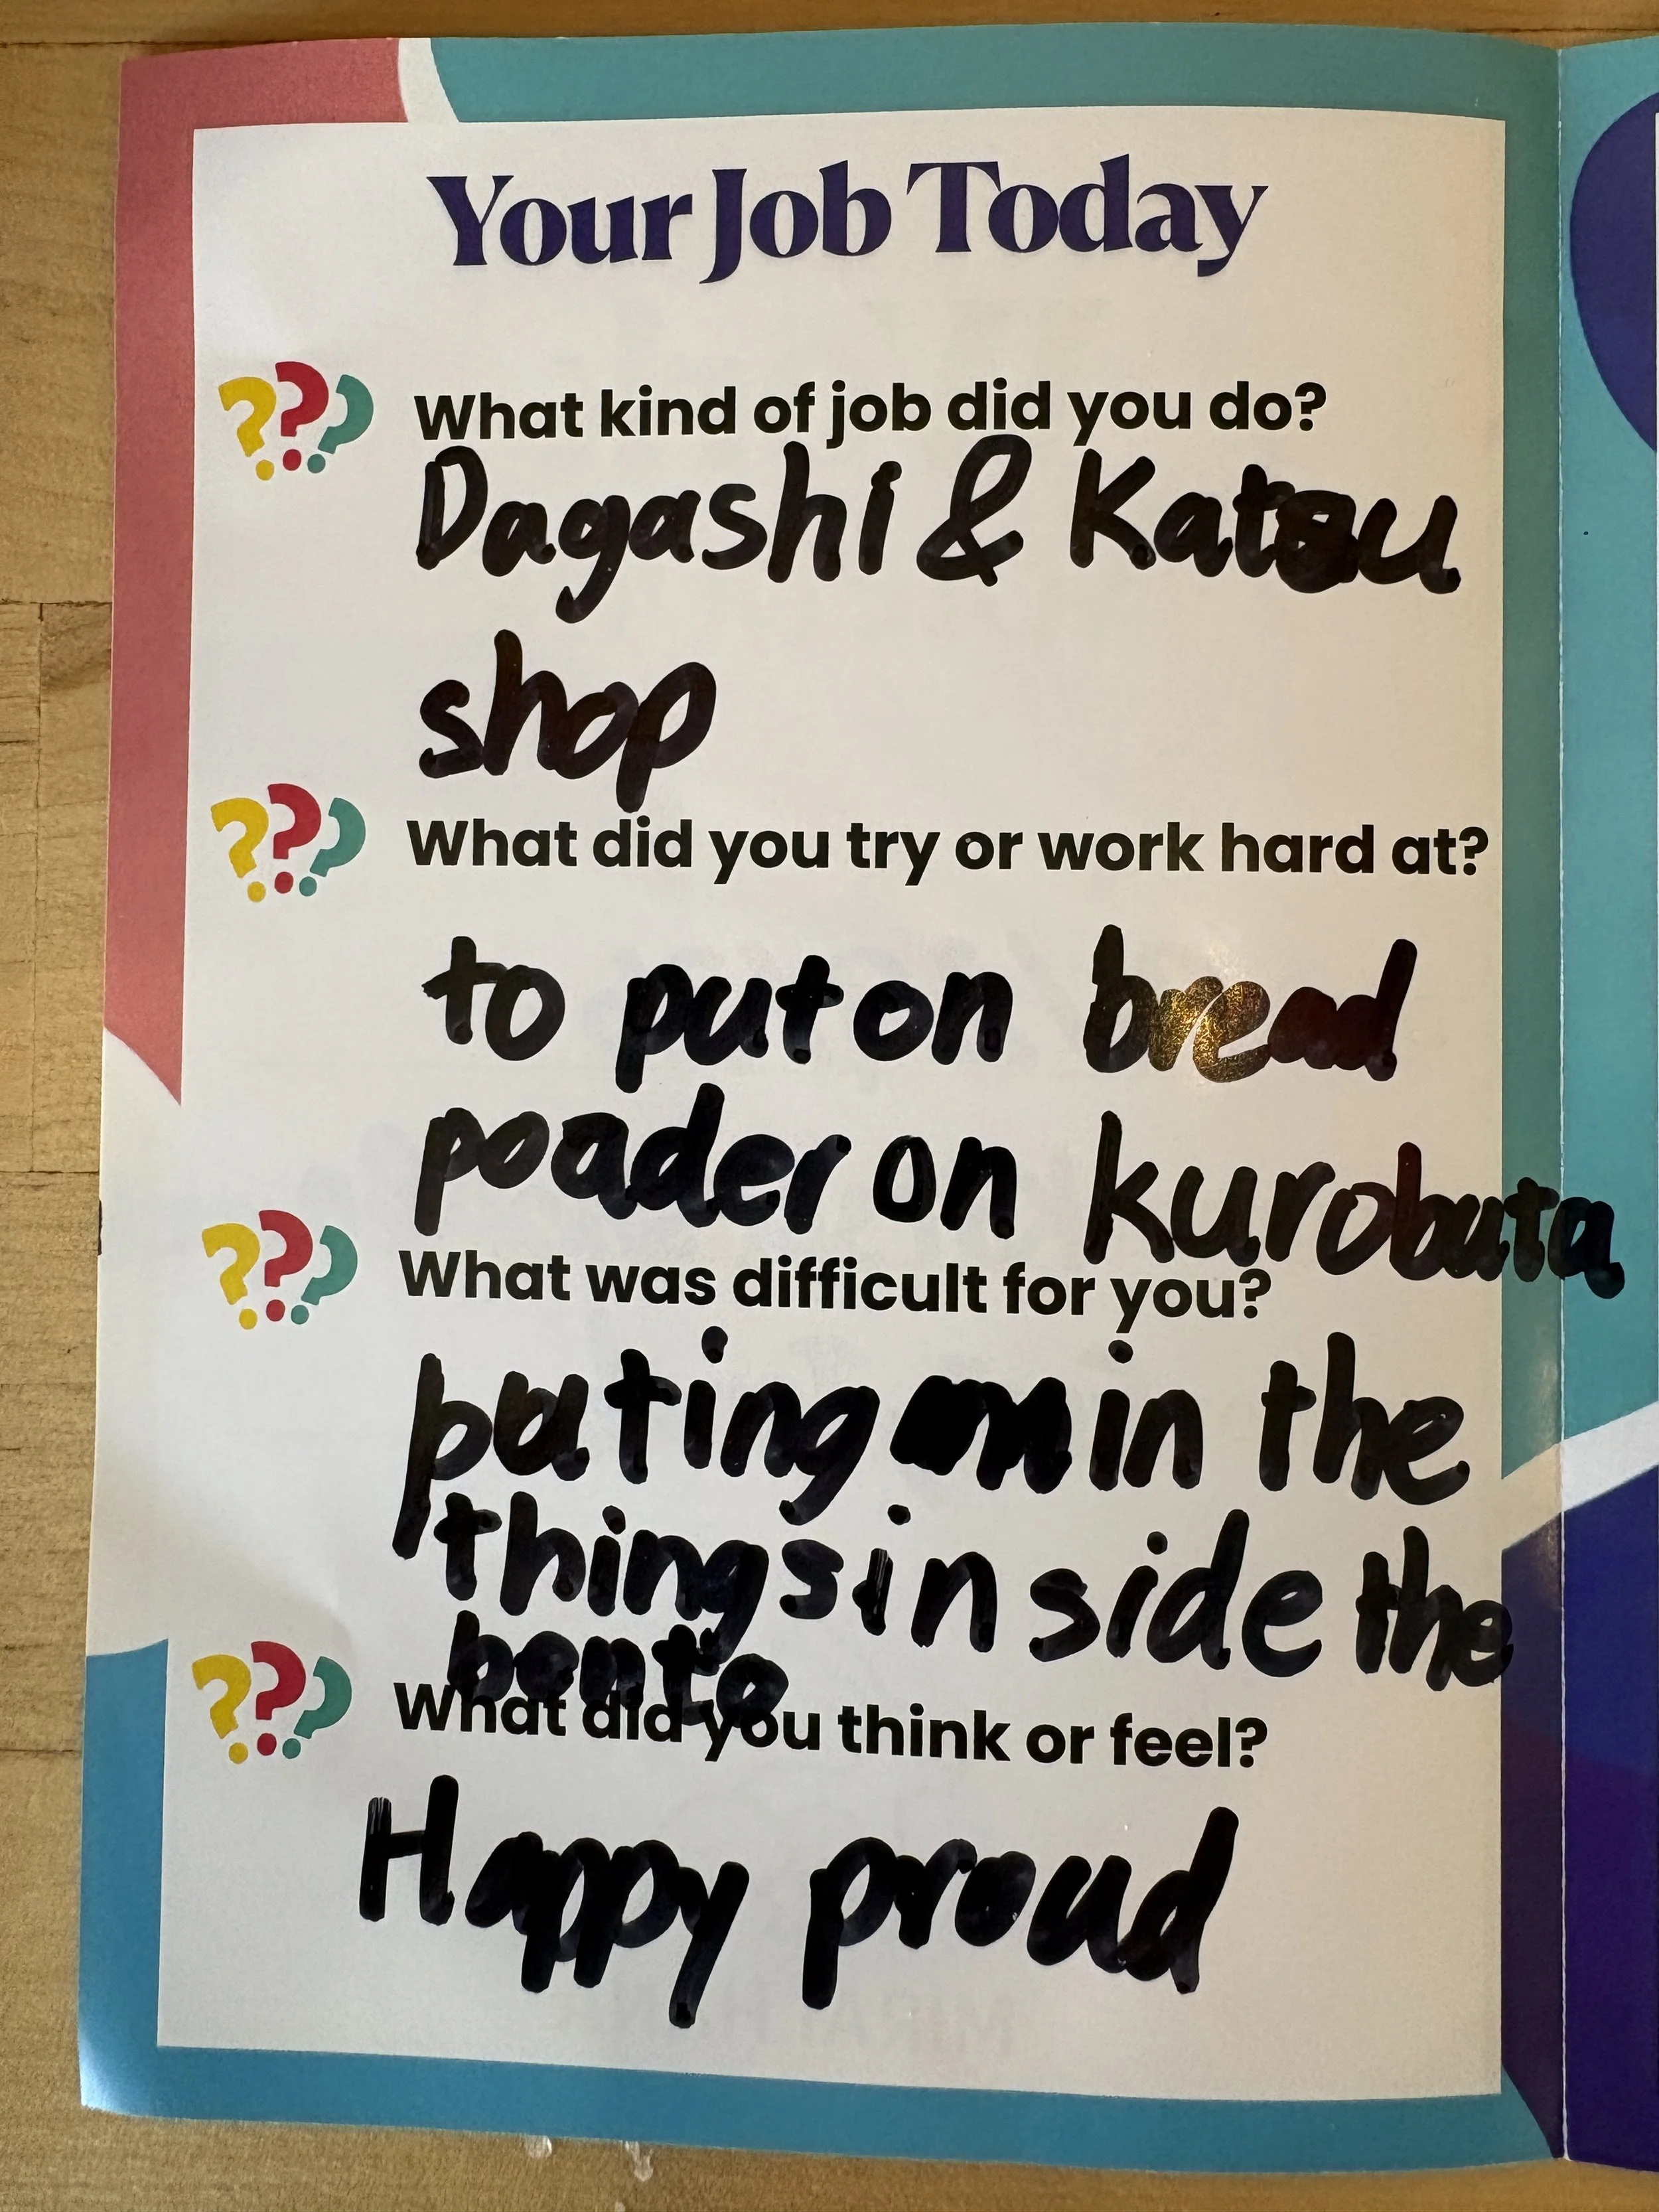 Your Job Today
What kind of job did you do?
Dagashi & Katsu
shop
What did you try or work hard at?
to put on bread
poader on kurobuta
What was difficult for you?
puting in the
things in side the
bento
What did you think or feel?
Happy proud